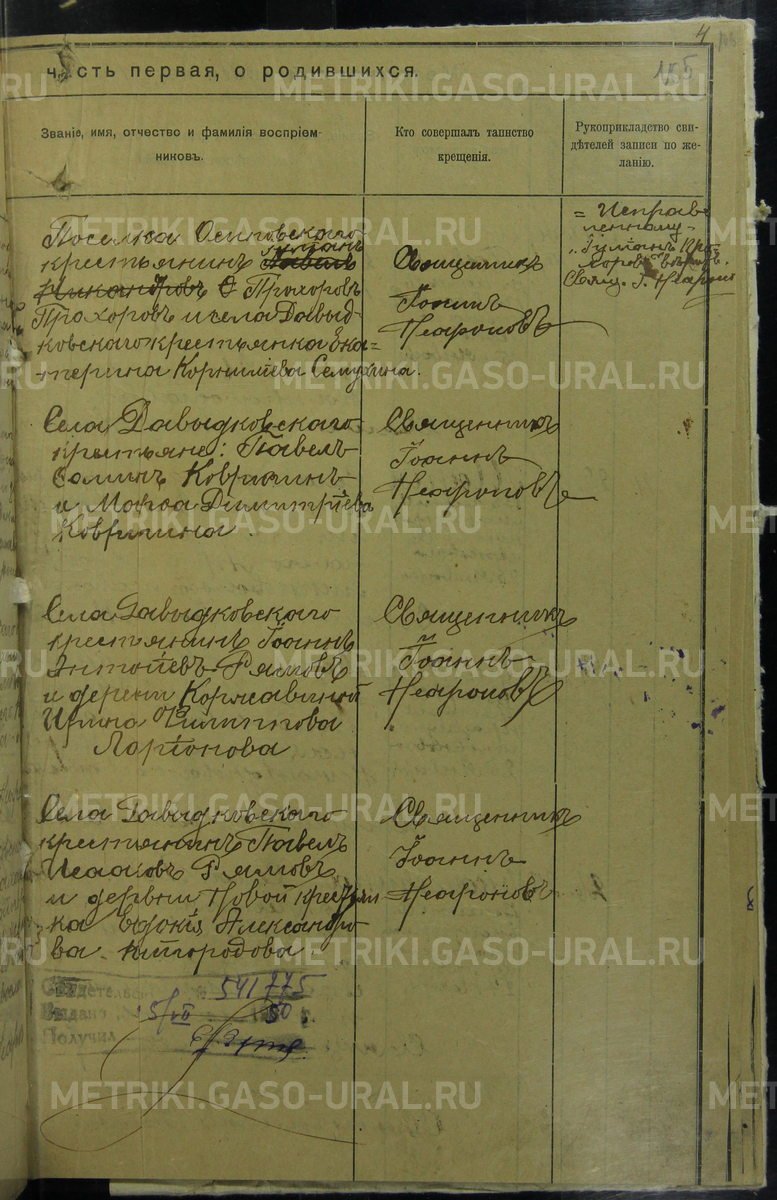 4
часть первая, о родившихся.
155
Званіе, имя, отчество и фамилія воспріем-
никовъ.
Кто совершалъ таинство
крещенія.
Рукоприкладство сви-
дѣтелей записи по же-
ланію.
Поселка Осиновскаго
крестьянинъ Гуманъ Павелъ
Никандровъ Прохоровъ
Прохоровъ и села Давыд-
ковскаго крестьянка Ека-
терина Корнилiева Семухина.
Священникъ
Іоаннъ
Неароновъ
= Исправ-
ленному
"Гуманъ Про-
хоровъ" вѣрить.
Свящ. І. Неаронов
Села Давыдковскаго
крестьяне: Павелъ
Ковригинъ
и Марѳа Димитріева
Ковригина.
Священникъ
Іоаннъ
Неароновъ
Села Давыдковскаго
крестьянинъ Іоаннъ
Антоніевъ Рямовъ
и дерени Коржавиной
Ирина Филиппова
Ларіонова
Священникъ
Іоаннъ
Неароновъ
Села Давыдковскаго
крестьянинъ Павелъ
Исааковъ Рямовъ
и деревни Новой крестьян
ка Евдокія Александро
ва
Священникъ
Іоаннъ
Неароновъ
541775
Выдано 5/VII 50 г.
Получил
METRIKI.GASO-URAL.RU